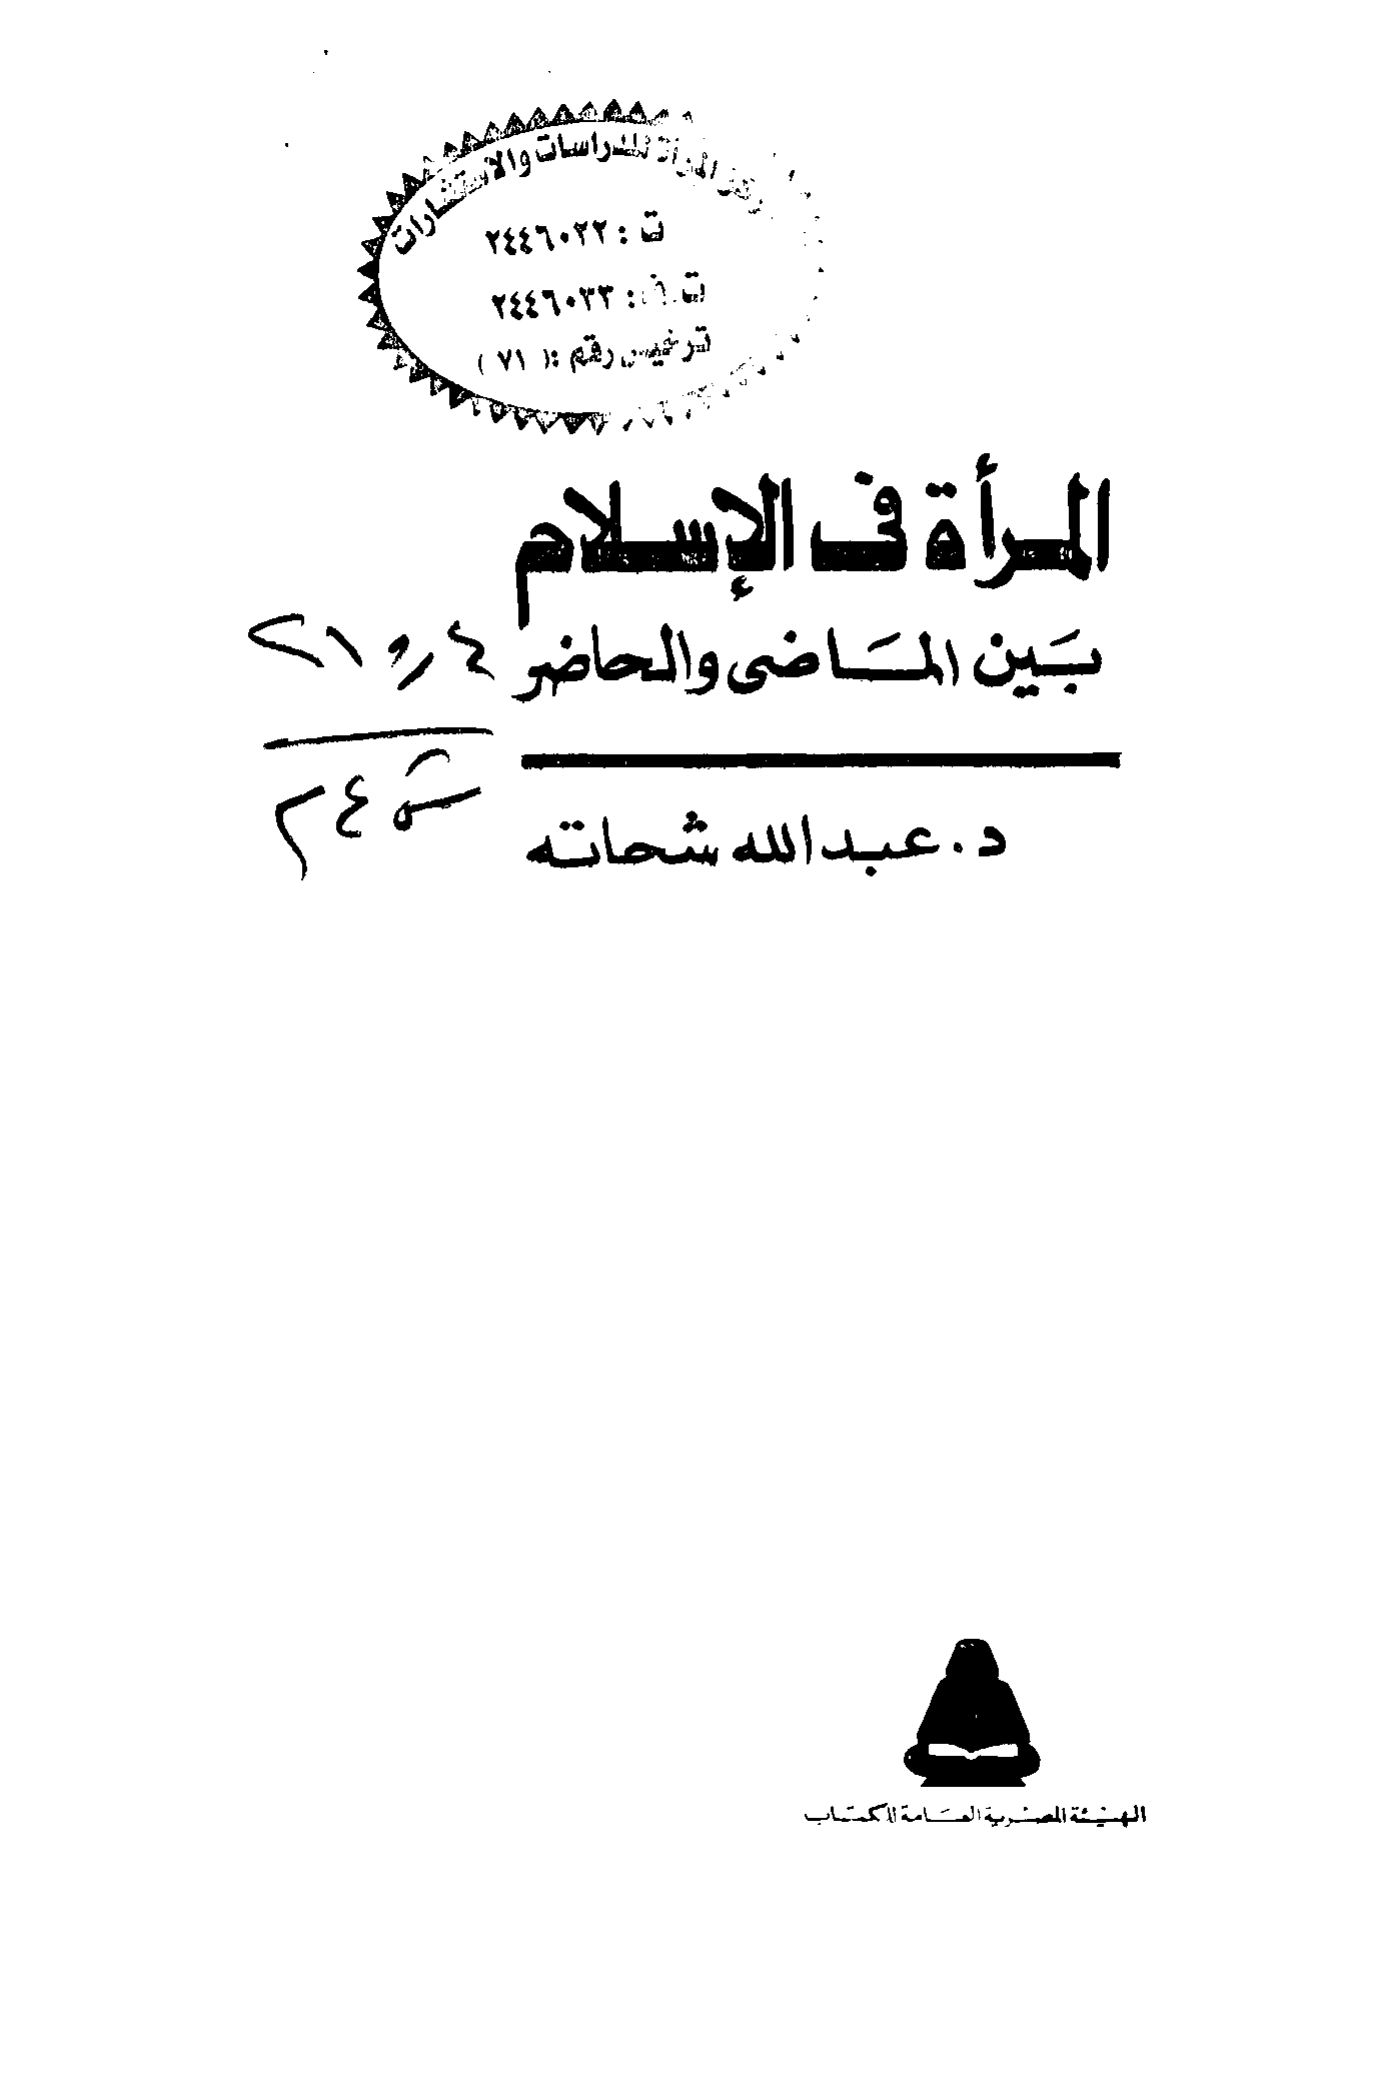 مركز المرأة للدراسات والاستشارات
ت : ٢٤٤٦٠٢٢
ت.ف : ٢٤٤٦٠٣٣
ترخيص رقم : ( ٧١ )
المرأة فى الإسلام
بين الماضى والحاضر
٢١٩٫٤
د. عبد الله شحاته
الهيئة المصرية العامة للكتاب